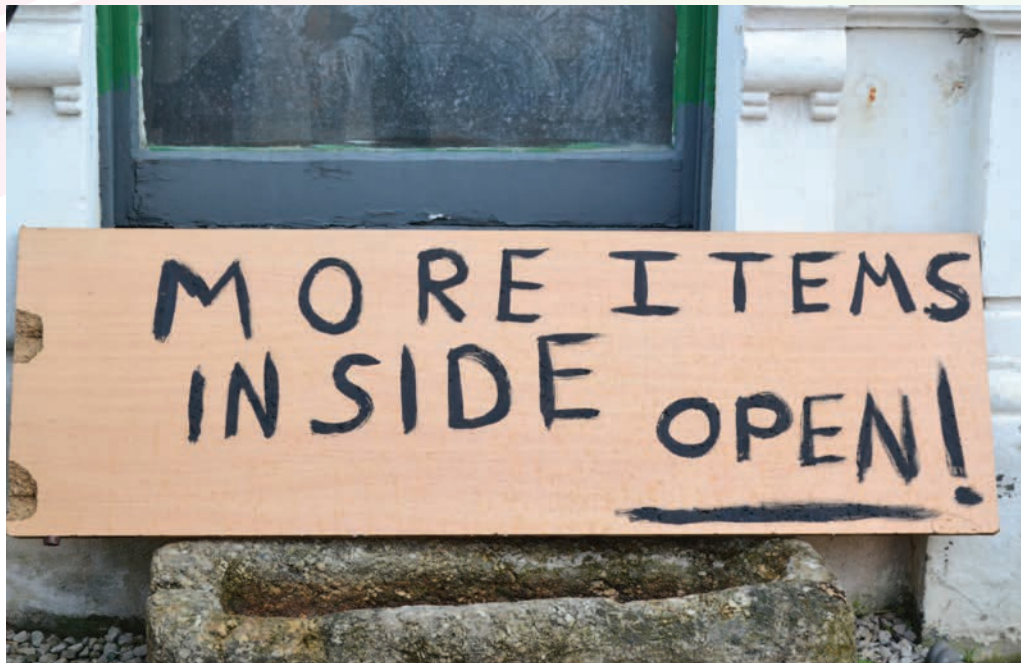 MORE ITEMS
INSIDE OPEN!